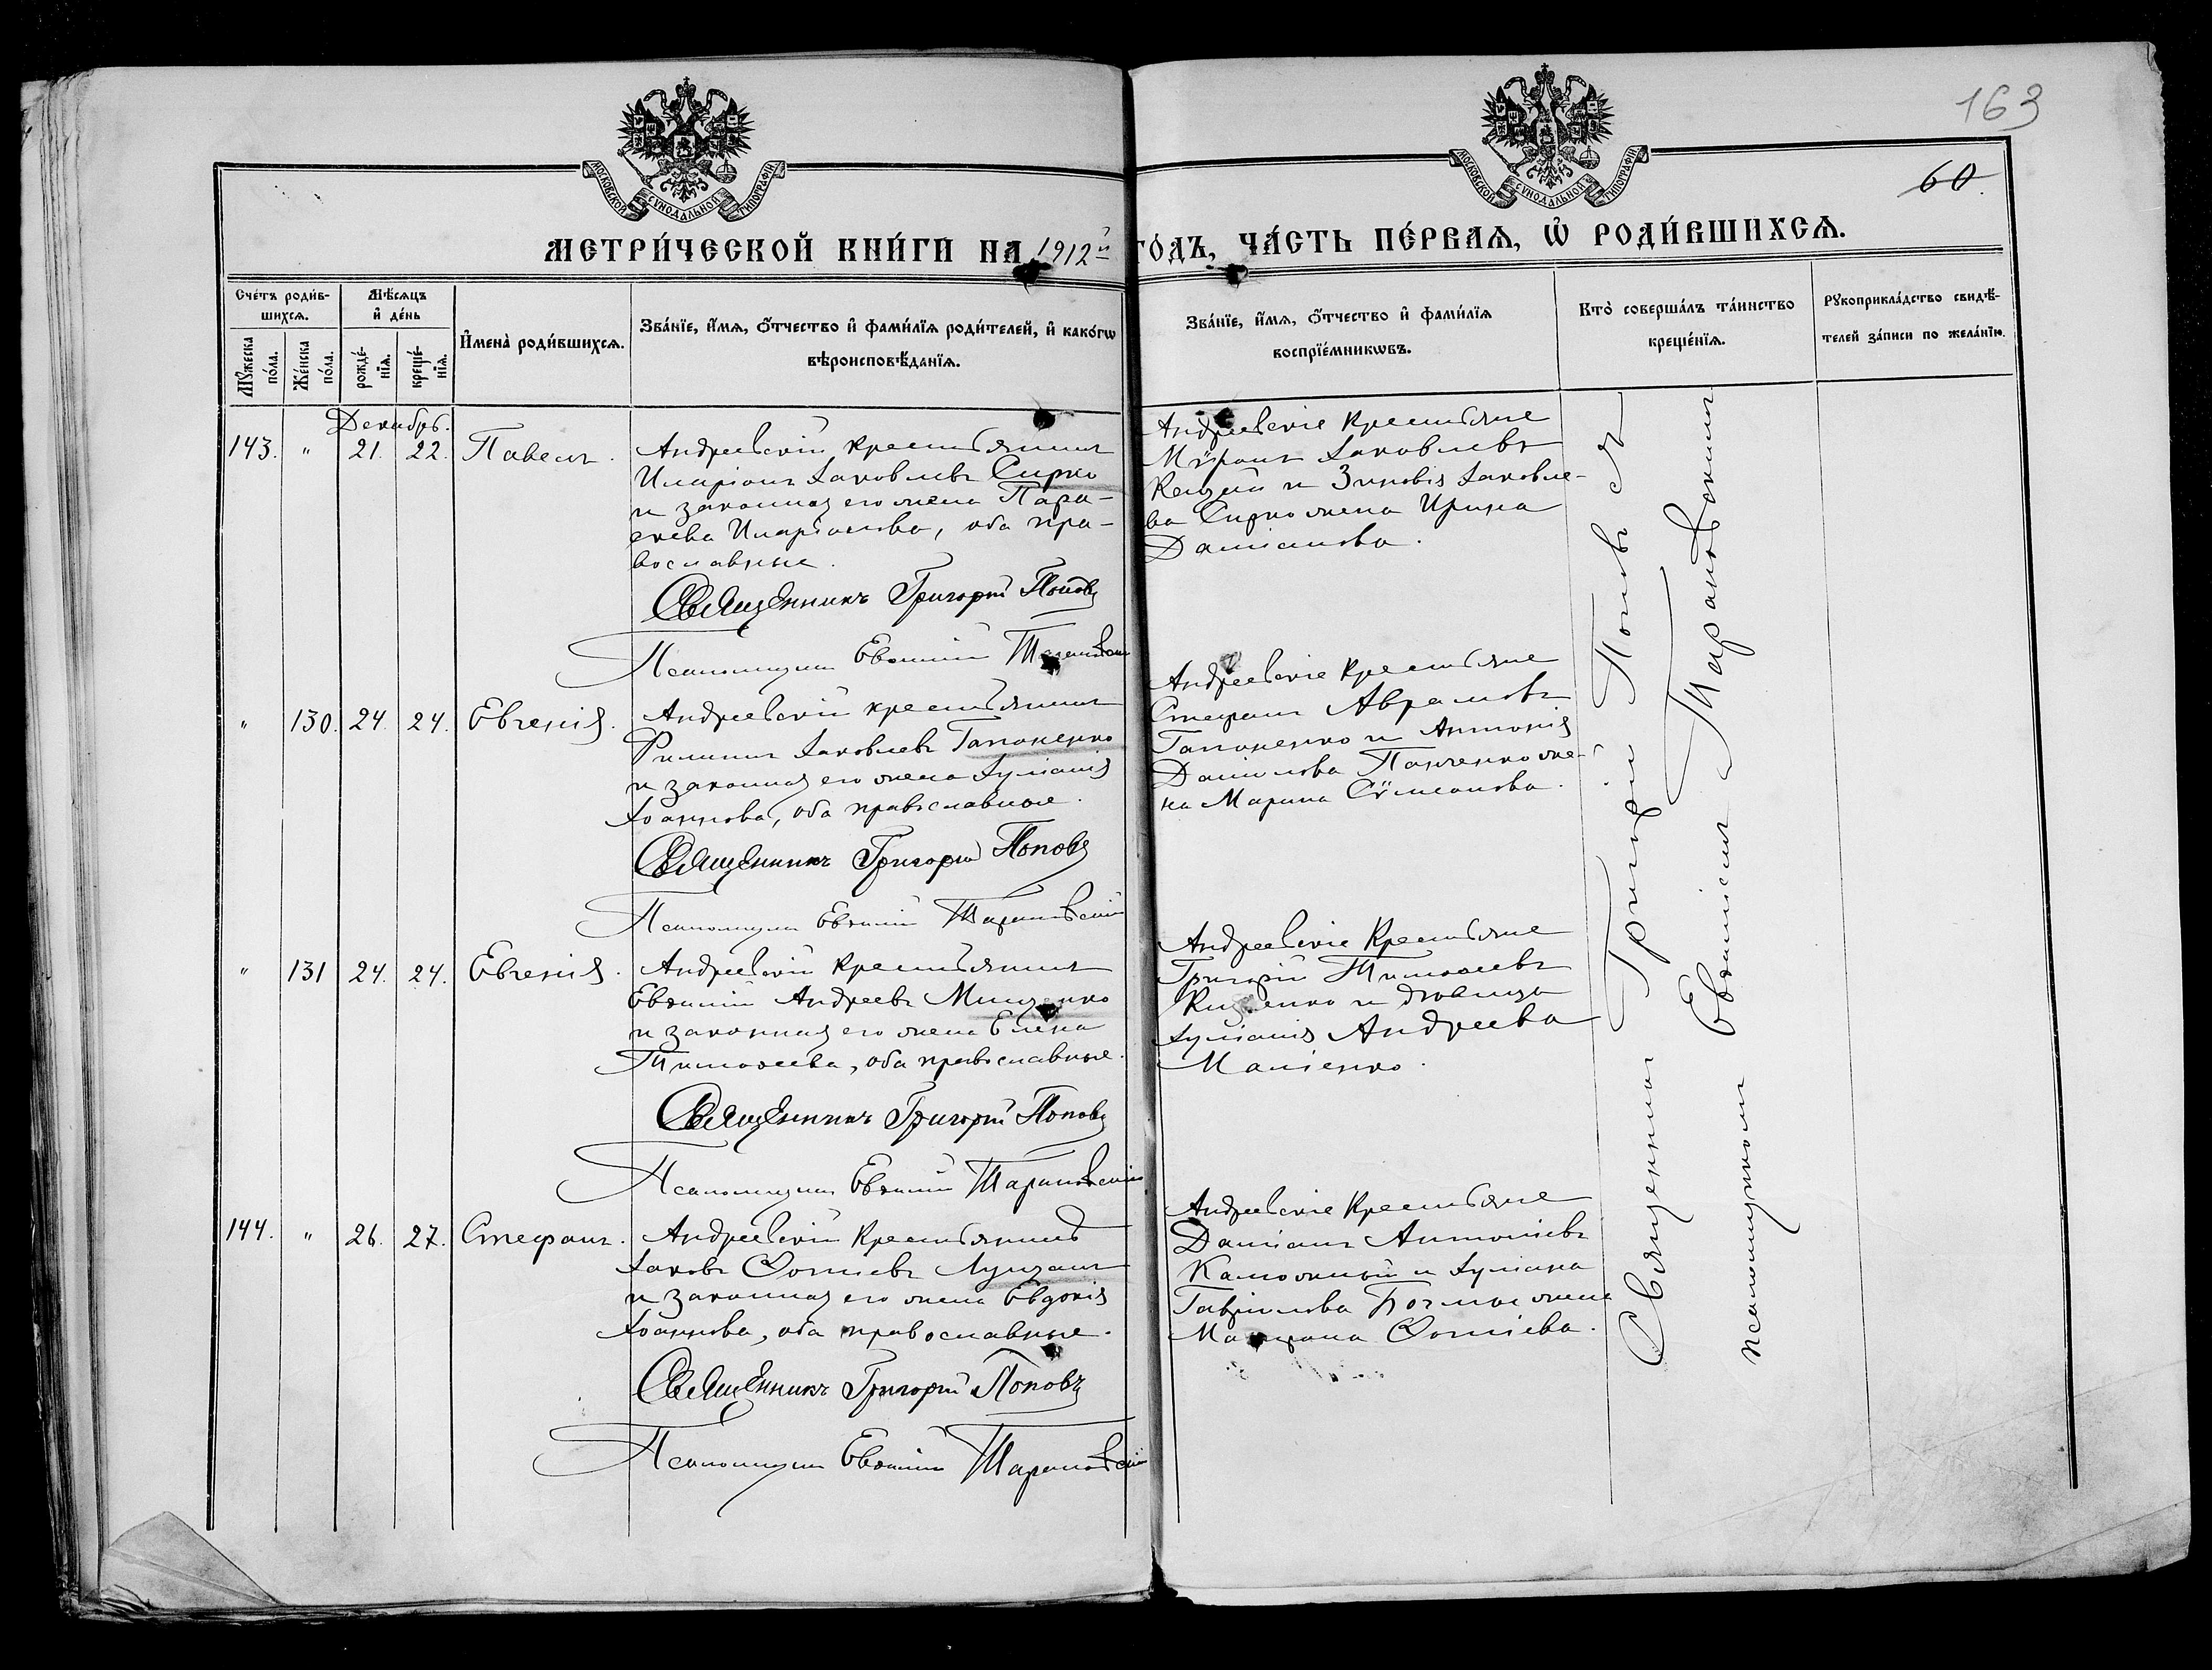 163
60.
МОСКОВСКОЙ СУНОДАЛЬНОЙ ТИПОГРАФІИ
МОСКОВСКОЙ СУНОДАЛЬНОЙ ТИПОГРАФІИ
МЕТРИ́ЧЕСКОЙ КНИ́ГИ НА 1912й ГО́ДЪ, ЧА́СТЬ ПЕ́РВАѦ, Ѡ҆ РОДИ́ВШИХСѦ.
Сче́тъ роди́в-
шихсѧ.
Мꙋ́жеска по́ла.
Же́нска по́ла.
Мѣ́сѧцъ
и҆ де́нь
рожде́-
нїѧ.
креще́-
нїѧ.
И҆мена̀ роди́вшихсѧ.
Зва́нїе, и҆́мѧ, ѻ҆́тчество и҆ фами́лїѧ роди́телей, и҆ како́гѡ
вѣроисповѣ́данїѧ.
Зва́нїе, и҆́мѧ, ѻ҆́тчество и҆ фами́лїѧ
воспрїе́мникѡвъ.
Кто̀ соверша́лъ та́инство
креще́нїѧ.
Рꙋкоприкла́дство свидѣ́-
телей за́писи по жела́нїю.
Декабрь.
143. " 21. 22. Павелъ.
Андреевскій крестьянинъ
Иларіонъ Іаковлевъ Сирко
и законная его жена Пара-
скева Иларіонова, оба пра-
вославные.
Священникъ Григорій Поповъ
Псаломщикъ Евѳимій Тарановскій
Андреевскіе крестьяне
Мѵронъ Іаковлевъ
и Зиновія Іаковле-
ва Сирко жена Ирина
Даміанова.
" 130. 24. 24. Евгенія.
Андреевскій крестьянинъ
Филиппъ Іаковлевъ Гапоненко
и законная его жена Іуліанія
Іоаннова, оба православные.
Священникъ Григорій Поповъ
Псаломщикъ Евѳимій Тарановскій
Андреевскіе крестьяне
Стефанъ Аврамовъ
Гапоненко и Антонія
Даніилова Панченко же-
на Марина Сѵмеонова.
" 131 24. 24. Евгенія.
Андреевскій крестьянинъ
Евѳимій Андреевъ Мищенко
и законная его жена Елена
Тимоѳеева, оба православные.
Священникъ Григорій Поповъ
Псаломщикъ Евѳимій Тарановскій
Андреевскіе крестьяне
Григорій Тимоѳеевъ
и дѣвица
Іуліанія Андреева
144. " 26. 27. Стефанъ.
Андреевскій крестьянинъ
Іаковъ Ѳотіевъ Луцанъ
и законная его жена Евдокія
Іоаннова, оба православные.
Священникъ Григорій Поповъ
Псаломщикъ Евѳимій Тарановскій
Андреевскіе крестьяне
Даміанъ Антоніевъ
и Іуліана
Гавріилова жена
Ѳотіева.
Священникъ Григорій Поповъ съ
псаломщикомъ Евѳиміемъ Тарановскимъ